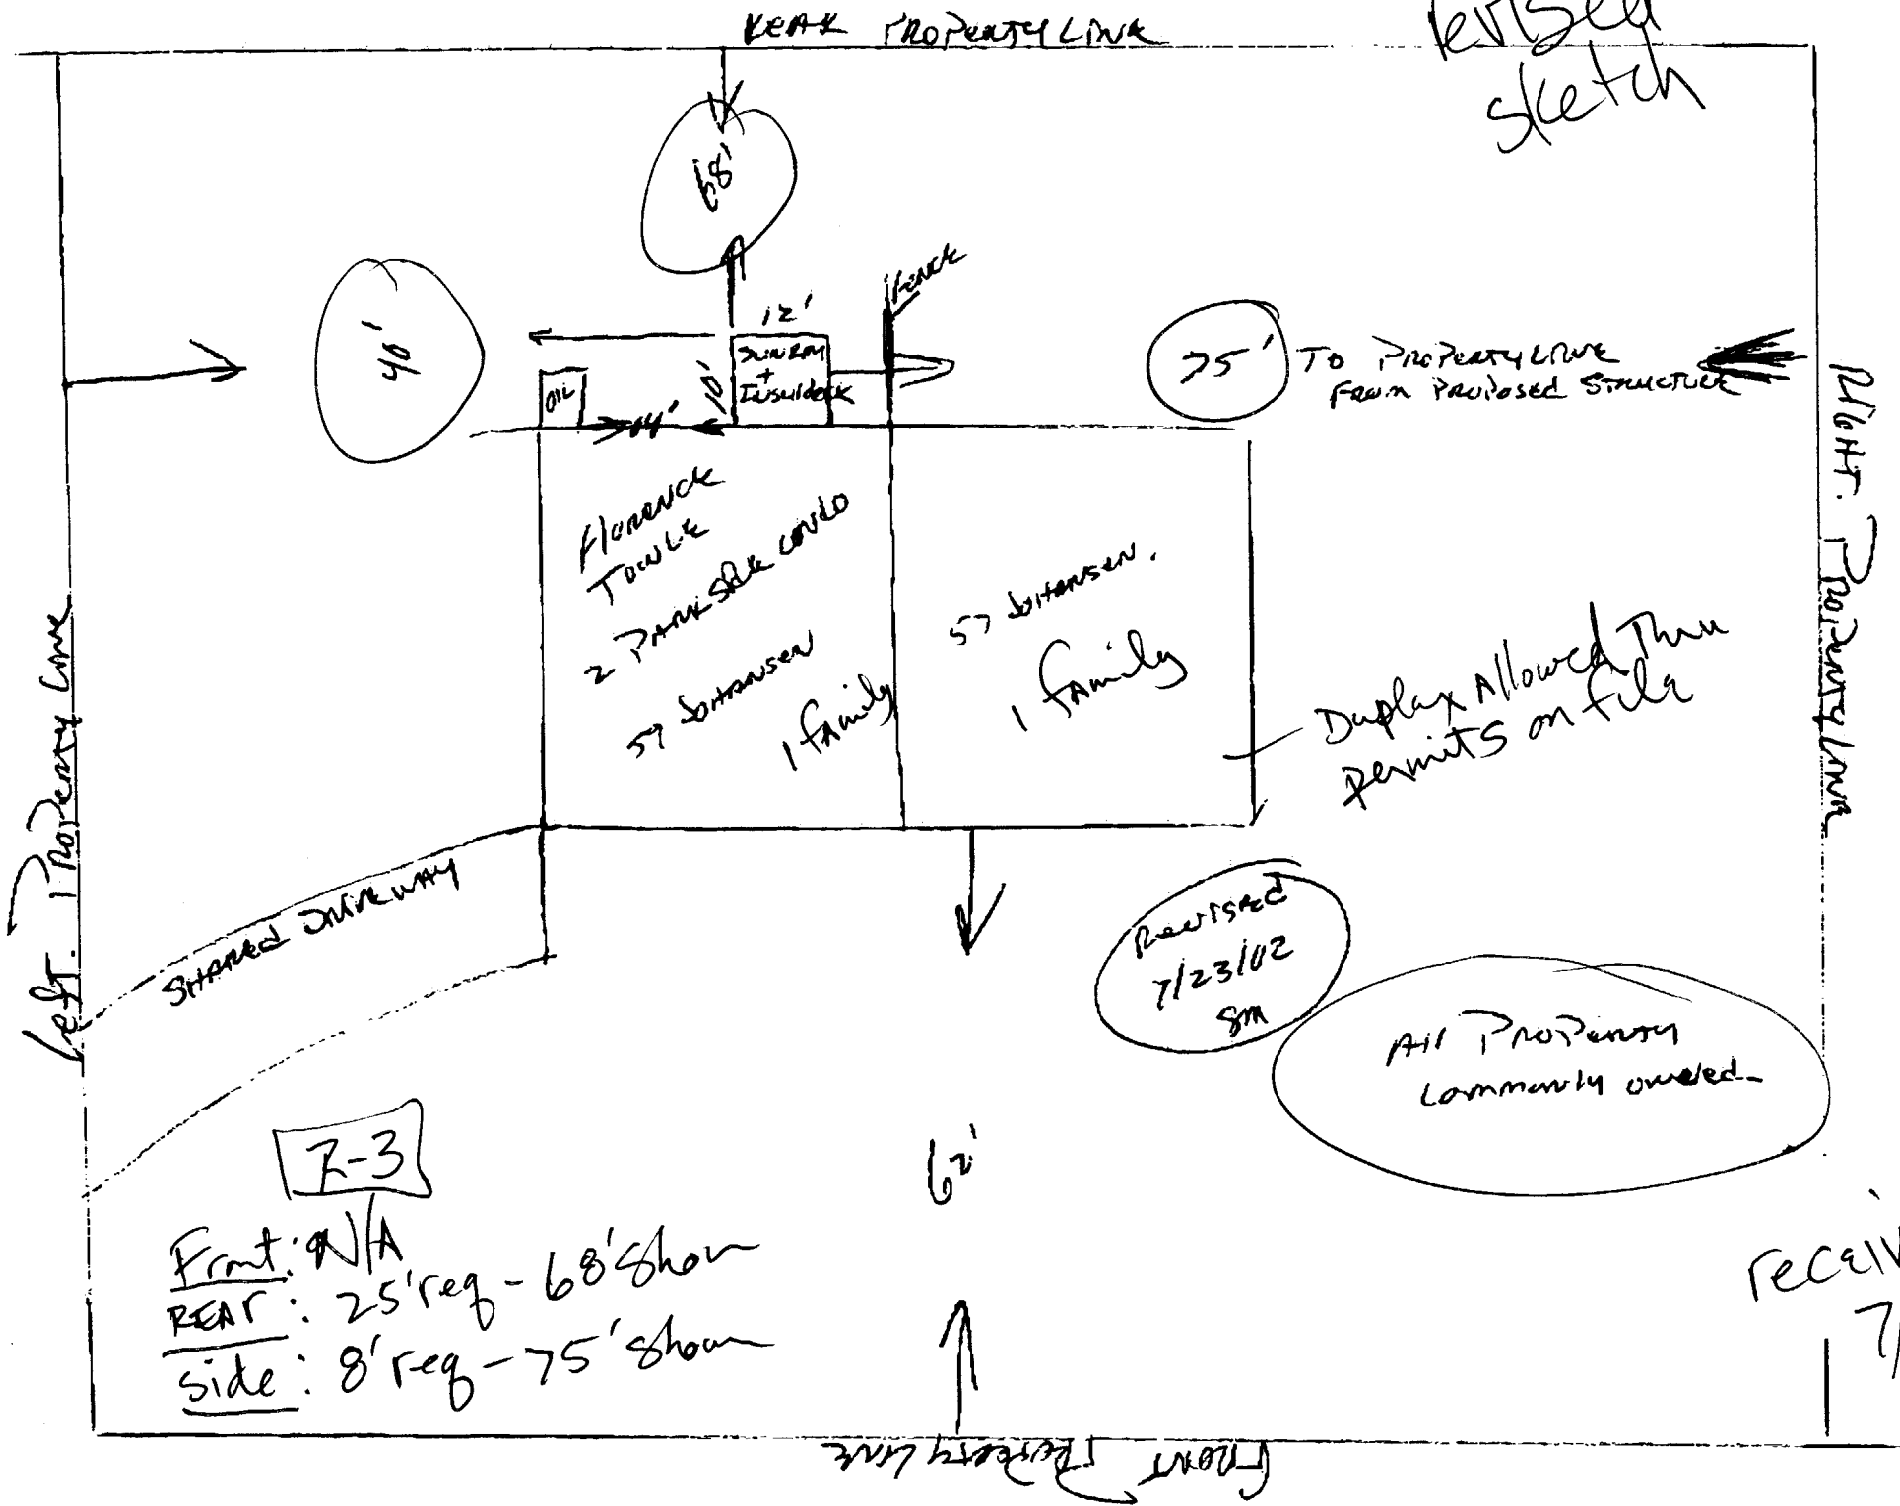 REAR PROPERTY LINE
revised
sketch
68'
40'
12'
FENCE
SUNRM
+
Insuldeck
10'
OIL
14'
75' TO PROPERTY LINE
FROM PROPOSED STRUCTURE
RIGHT. PROPERTY LINE
Florence
TOWLE
2 PARKSIDE
57 JOHANSEN
1 FAmily
57 JOHANSEN.
1 FAmily
Duplex Allowed Thru
permits on file
Left. PROPERTY LINE
SHARED DRIVEWAY
Revised
7/23/02
All PROPERTY
commonly owned
62'
R-3
Front: N/A
REAR: 25' req - 68' shown
Side: 8' req - 75' shown
receiv
7/
FRONT PROPERTY LINE